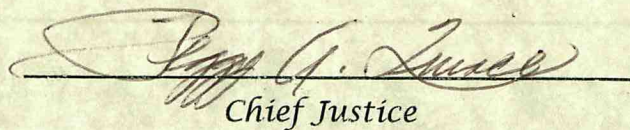 Peggy A. Quince
Chief Justice